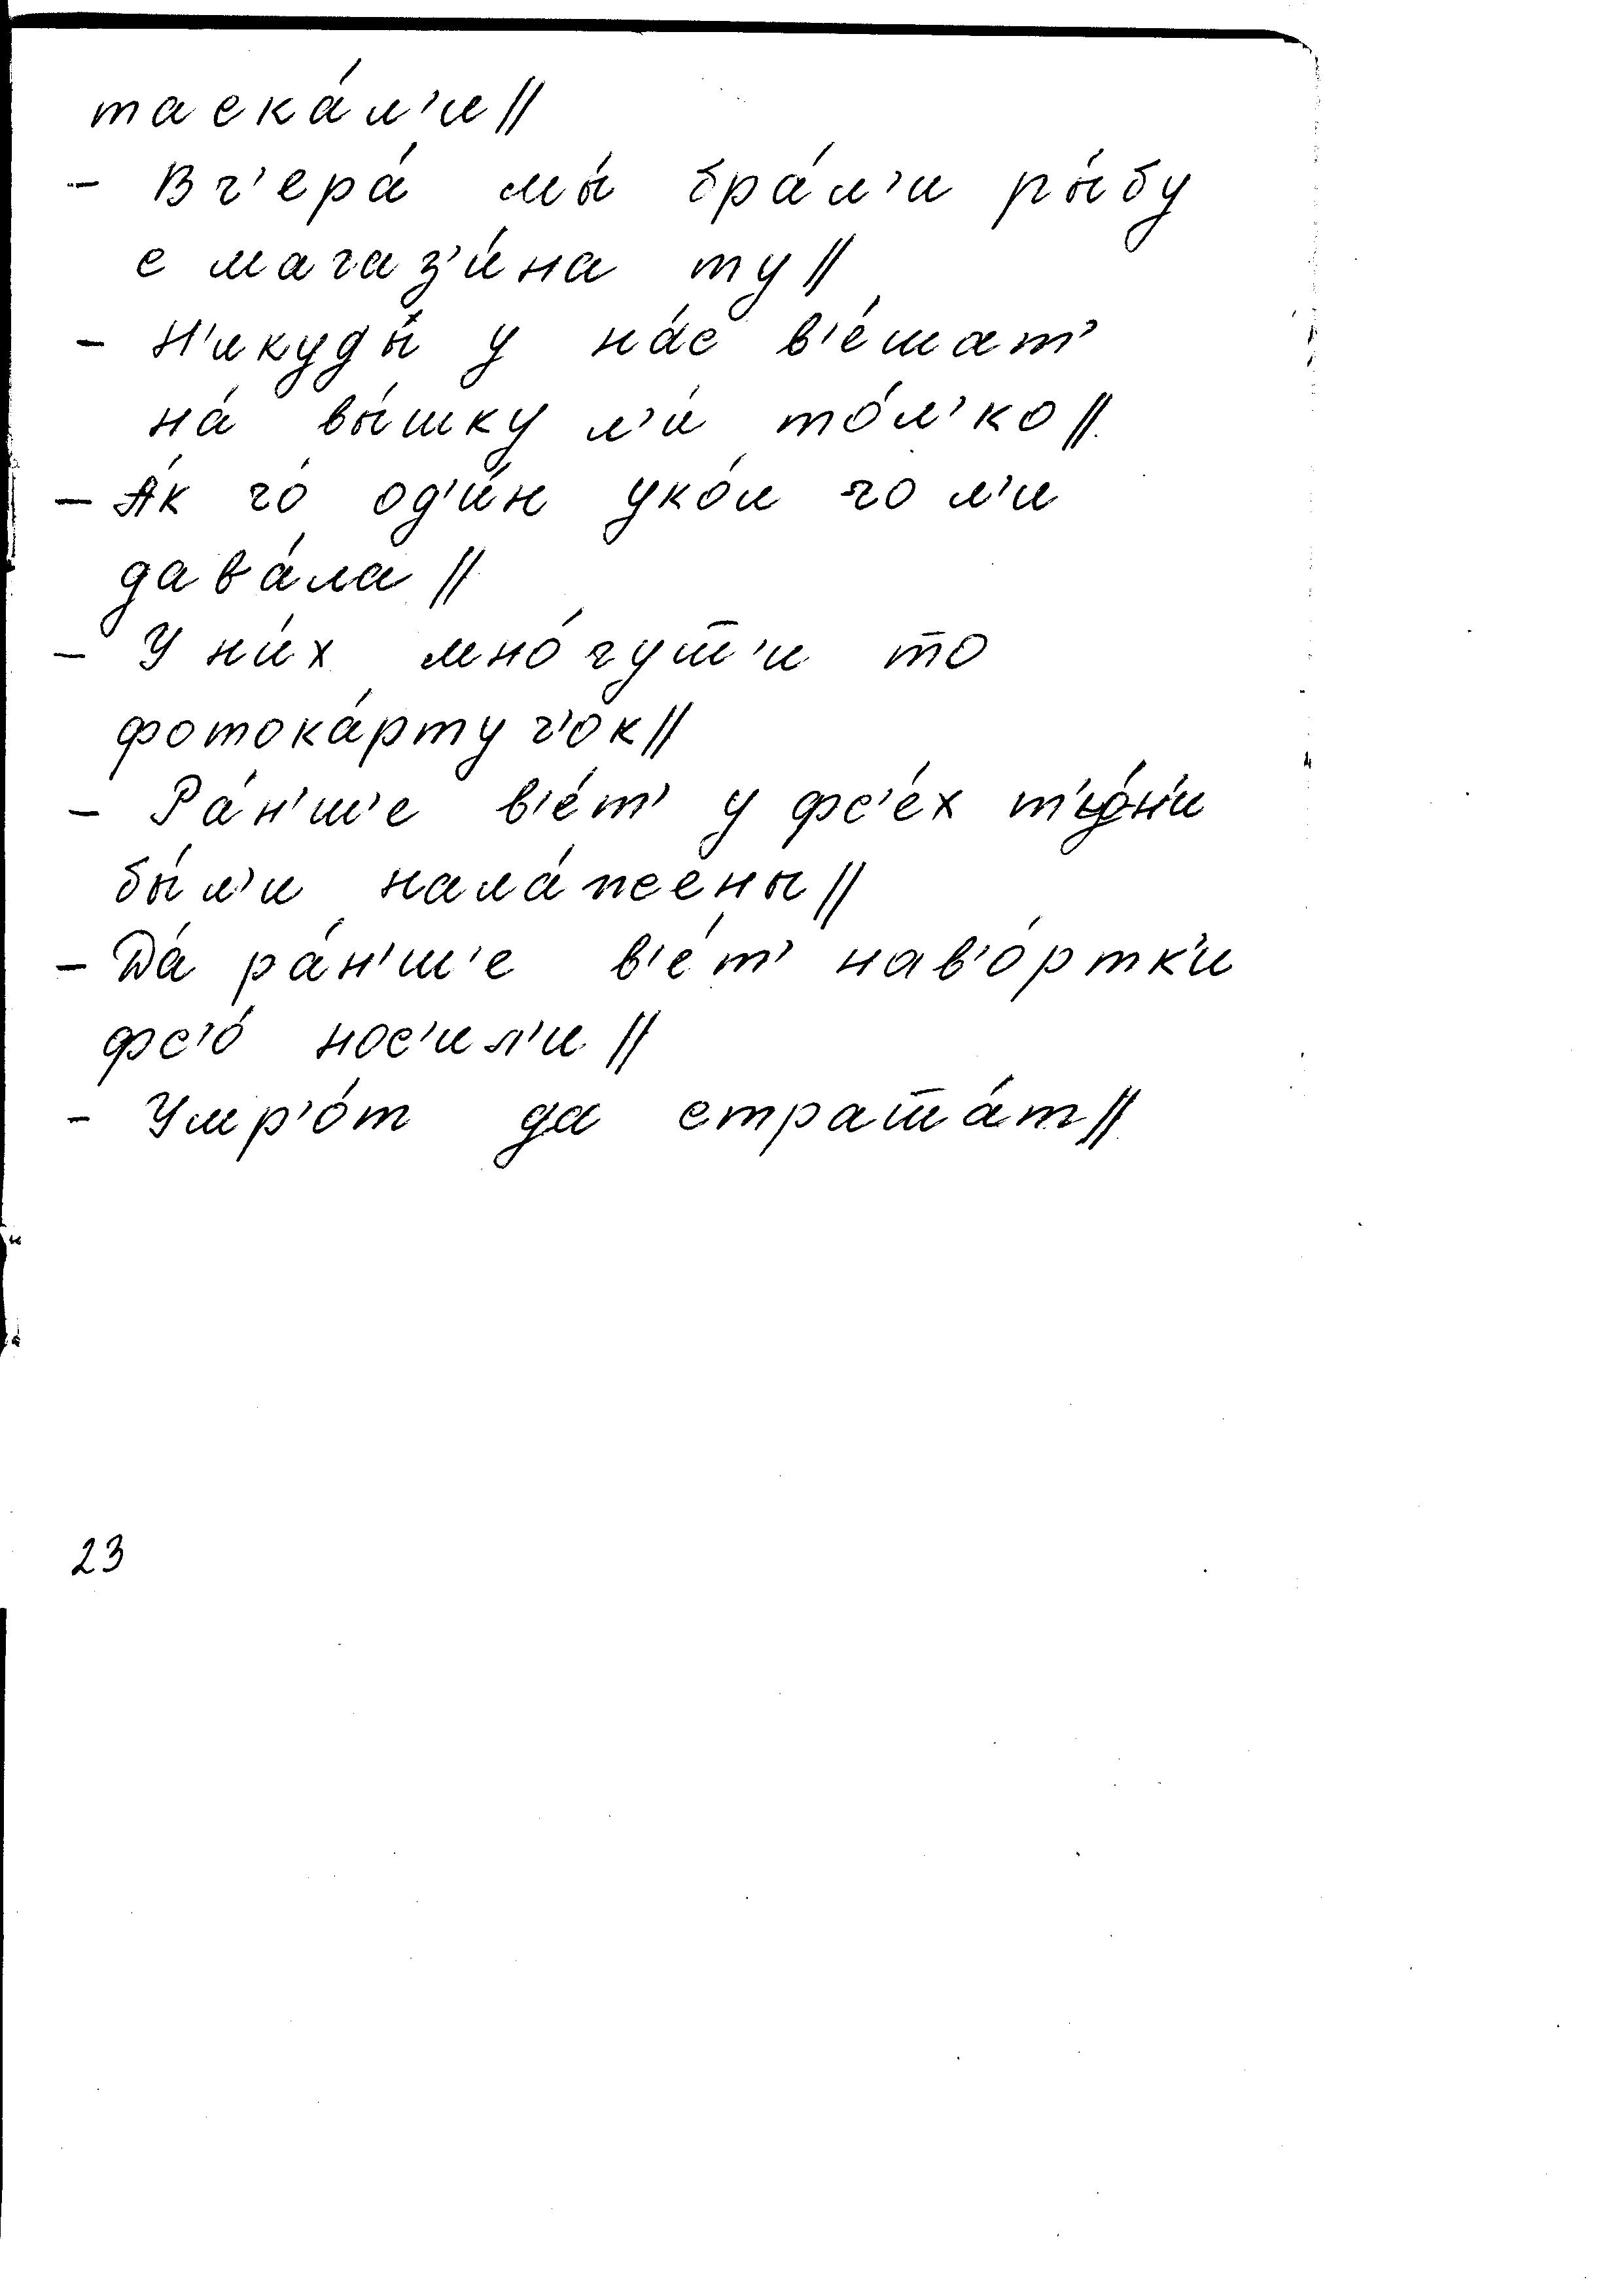 таска́л'и //
- Вч'ера́ мы́ бра́л'и ры́бу
с магаз'и́на ту //
- Н'икуды́ у на́с в'е́шат'
на́ вы́шку л'и́ то́л'ко //
- А́к чо́ од'и́н уко́л чо л'и
дава́ла //
- У ни́х мно́гут'и то
фотока́рточ'ок //
- Ра́н'ш'е в'е́т' у фс'е́х т'ю́н'и
бы́л'и нала́жены //
- Да́ ра́н'ш'е в'е́т' нав'о́ртк'и
фс'о́ нос'ил'и //
- Умр'о́т да страша́т //
23